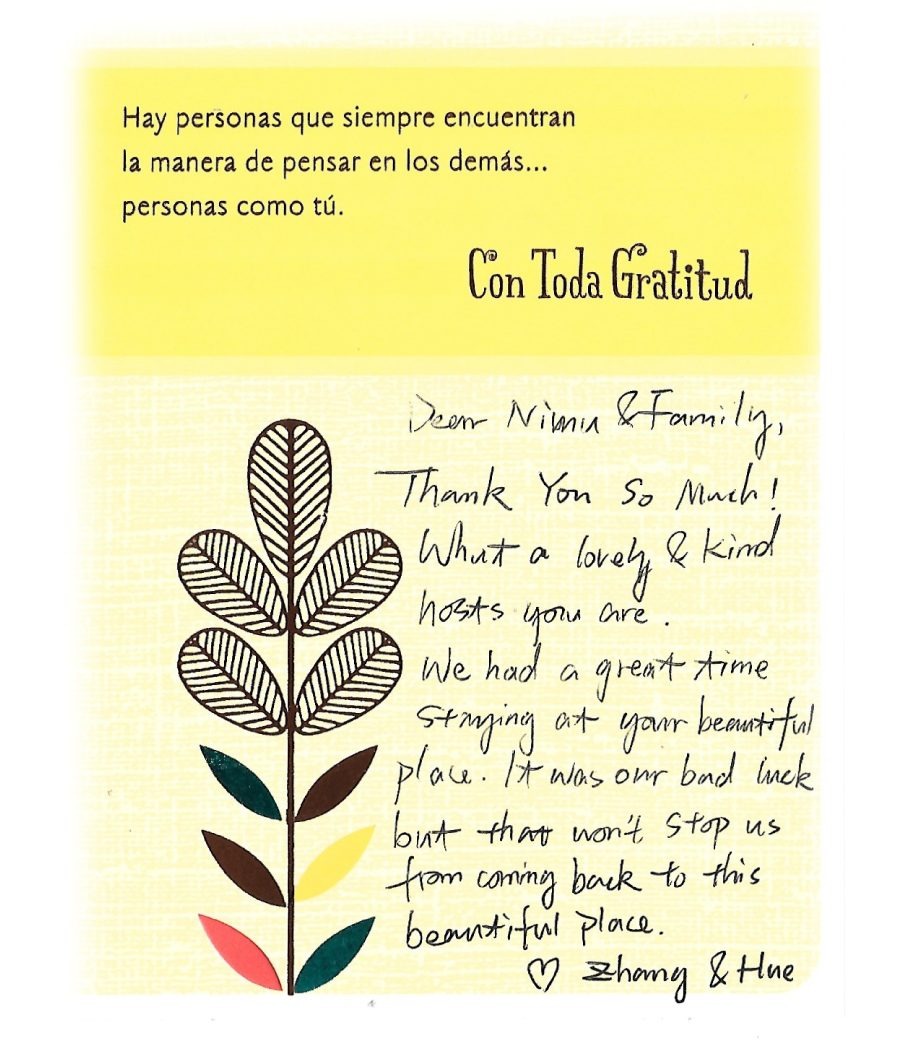 Hay personas que siempre encuentran
la manera de pensar en los demás...
personas como tú.
Con Toda Gratitud
Dear & Family,
Thank You So Much!
What a lovely & kind
hosts you are.
We had a great time
staying at your beautiful
place. It was our bad luck
but that won't stop us
from coming back to this
beautiful place.
♡ Zhang & Hue